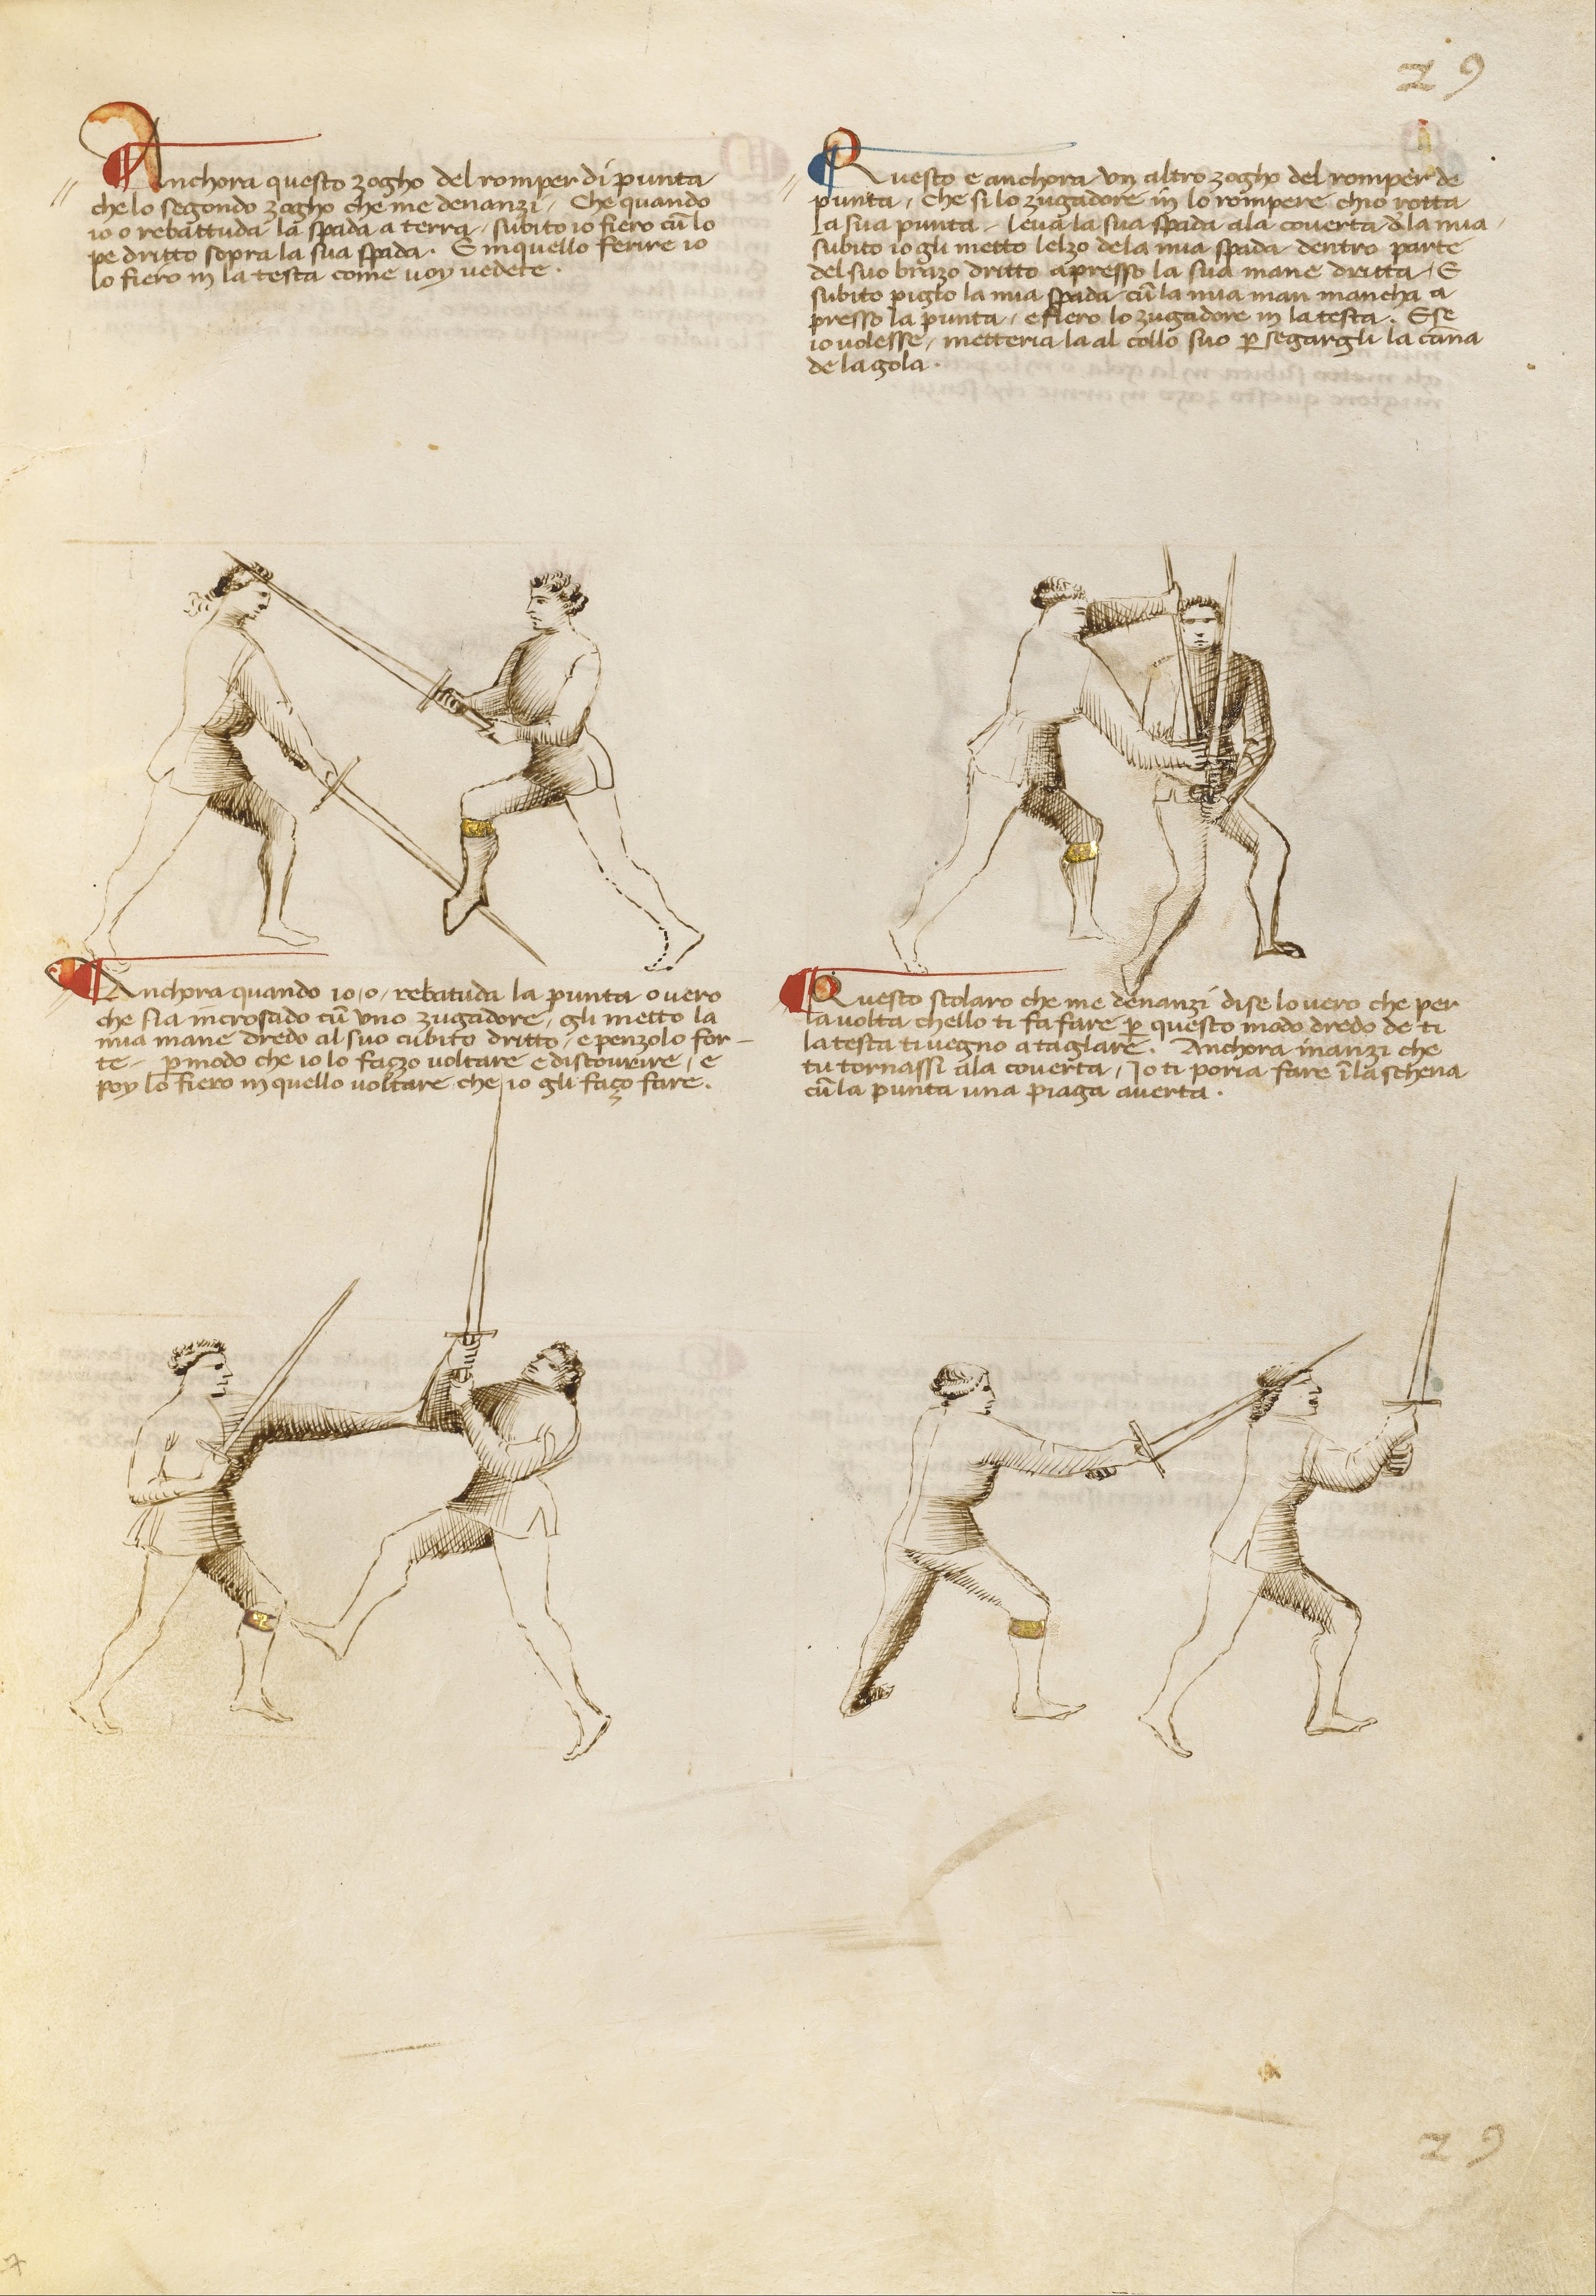 29
Anchora questo zogho del romper di punta
che lo segondo zogho che me denanzi, Che quando
io o rebattuda la spada a terra, subito io fiero cu̅ lo
pe dritto sopra la sua spada. E inquello ferire io
lo fiero in la testa come uoy uedete.
Questo e anchora vn altro zogho del romper de
punta, Che si lo zugadore in lo rompere chio rotta
la sua punta, leua la sua spada ala couerta d̅la mia,
subito io gli metto lelzo dela mia spada dentro parte
del suo brazo dritto apresso la sua mane dritta, E
subito piglo la mia spada cu̅ la mia man mancha a
presso la punta, e fiero lo zugadore in la testa. E se
io uolesse, metteria la al collo suo ꝑ segargli la can̅a
de la gola.
Anchora quando io, o, rebatuda la punta ouero
che sia incrosado cu̅ vno zugadore, gli metto la
mia mane dredo al suo cubito dritto, e penzolo for-
te, ꝑ modo che io lo fazzo voltare e discourire, e
poy lo fiero in quello voltare che io gli fazo fare.
Questo scolaro che me denanzi dise lo uero che per
la uolta chello ti fa fare ꝑ questo modo dredo de ti
la testa ti uegno a taglare. Anchora inanzi che
tu tornassi a la couerta, Io ti poria fare i̅ la schena
cu̅ la punta una piaga auerta.
29